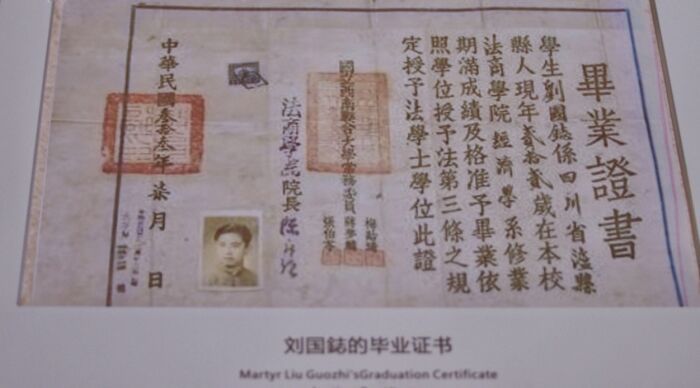 畢業證書
學生劉國鋕係四川省瀘縣
縣人現年貳拾貳歲在本校
法商學院經濟學系修業
期滿成績及格准予畢業依
照學位授予法第三條之規
定授予法學士學位此證
國立西南聯合大學常務委員
梅貽琦
蔣夢麟
張伯苓
法商學院院長
中華民國叁拾叁年柒月 日
刘国鋕的毕业证书
Martyr Liu Guozhi'sGraduation Certificate